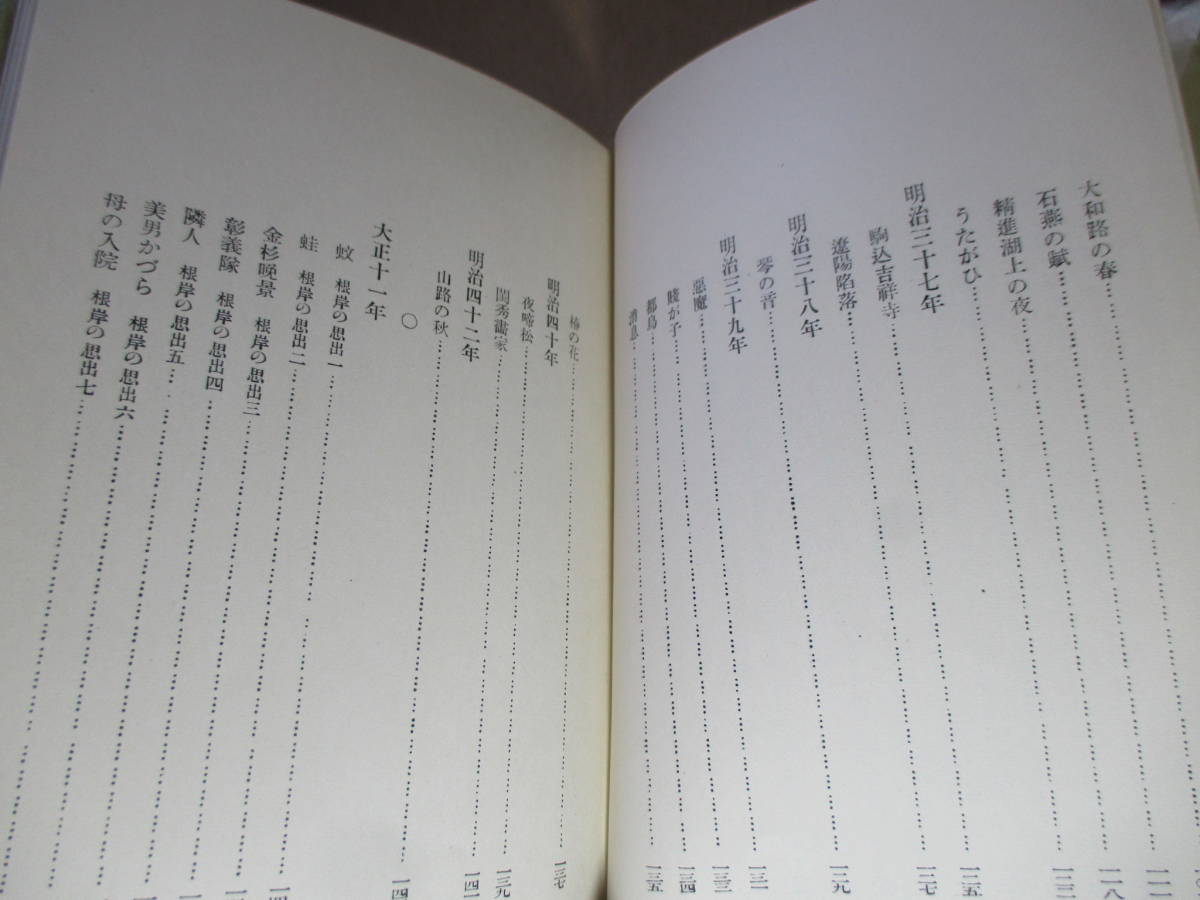 大和路の春
石燕の賦 一一八
精進湖上の夜
うたがひ 一二五
明治三十七年
駒込吉祥寺 一二七
遼陽陷落 一二九
明治三十八年
琴の音 一三一
明治三十九年
惡魔 一三三
賤が子 一三四
都鳥 一三五
消息
椿の花 一三七
明治四十年
夜啼松 一三九
閨秀畫家 一四一
明治四十二年
山路の秋
〇
大正十一年
蚊 根岸の思出一
蛙 根岸の思出二
金杉晩景 根岸の思出三
彰義隊 根岸の思出四
隣人 根岸の思出五
美男かづら 根岸の思出六
母の入院 根岸の思出七